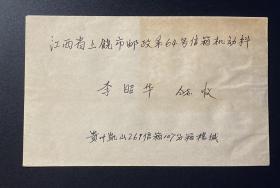 江西省上饶市邮政第64号信箱机动科
李昭华 收
贵州凯山269信箱107分箱